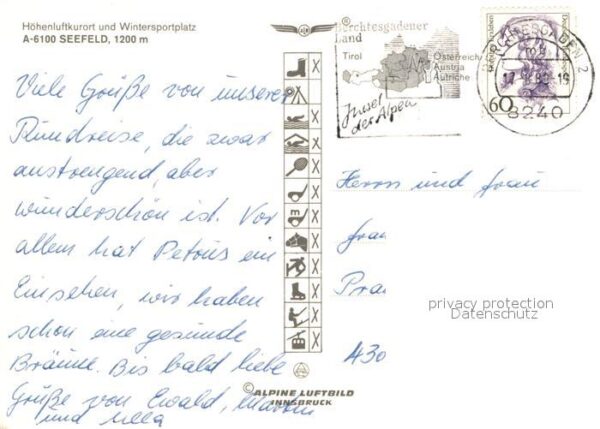 Höhenluftkurort und Wintersportplatz
A-6100 SEEFELD, 1200 m
Viele Grüße von unserer
Rundreise, die zwar
anstrengend, aber
wunderschön ist. Vor
allem hat Petrus ein
Einsehen, wir haben
schon eine gesunde
Bräune. Bis bald liebe
Grüße von Ewald,
und
Berchtesgadener
Land
Tirol
Österreich
Austria
Autriche
Insel
der Alpen
BERCHTESGADEN 2
8240
60
Herrn und Frau
Frau
430
privacy protection
Datenschutz
© ALPINE LUFTBILD
INNSBRUCK